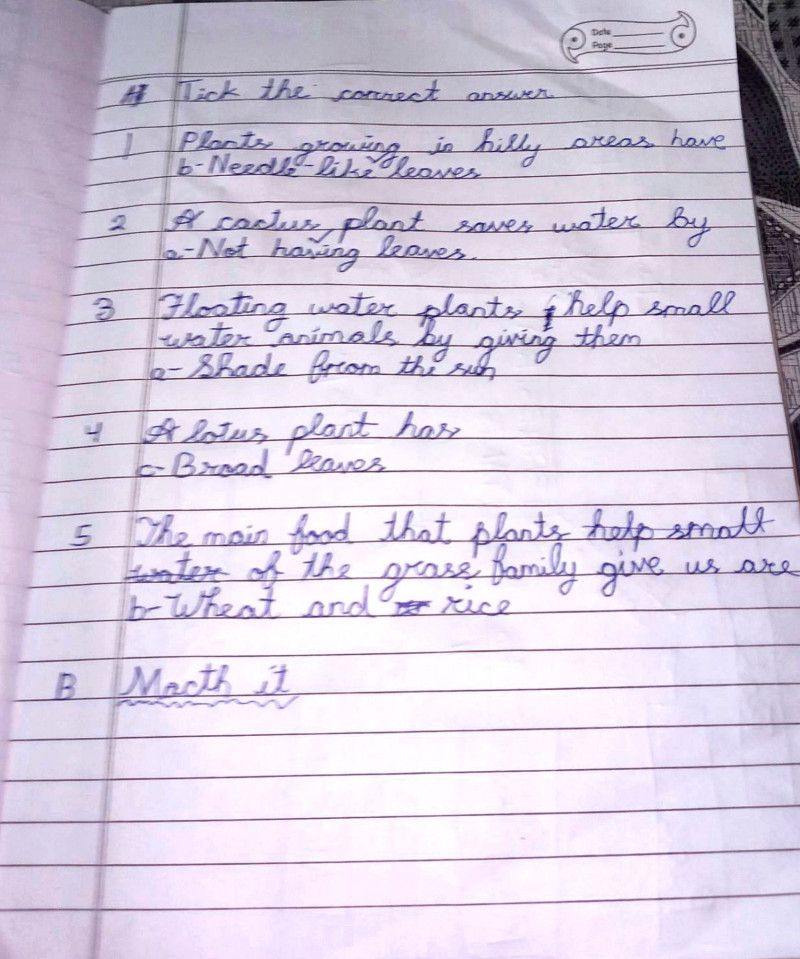 Date
Page
A Tick the correct answer
1 Plants growing in hilly areas have
b-Needle-like leaves
2 A cactus plant saves water by
a-Not having leaves.
3 Floating water plants help small
water animals by giving them
a-Shade from the sun
4 A lotus plant has
c-Broad leaves
5 The main food that plants help small
water of the grass family give us are
b-Wheat and rice
B Macth it